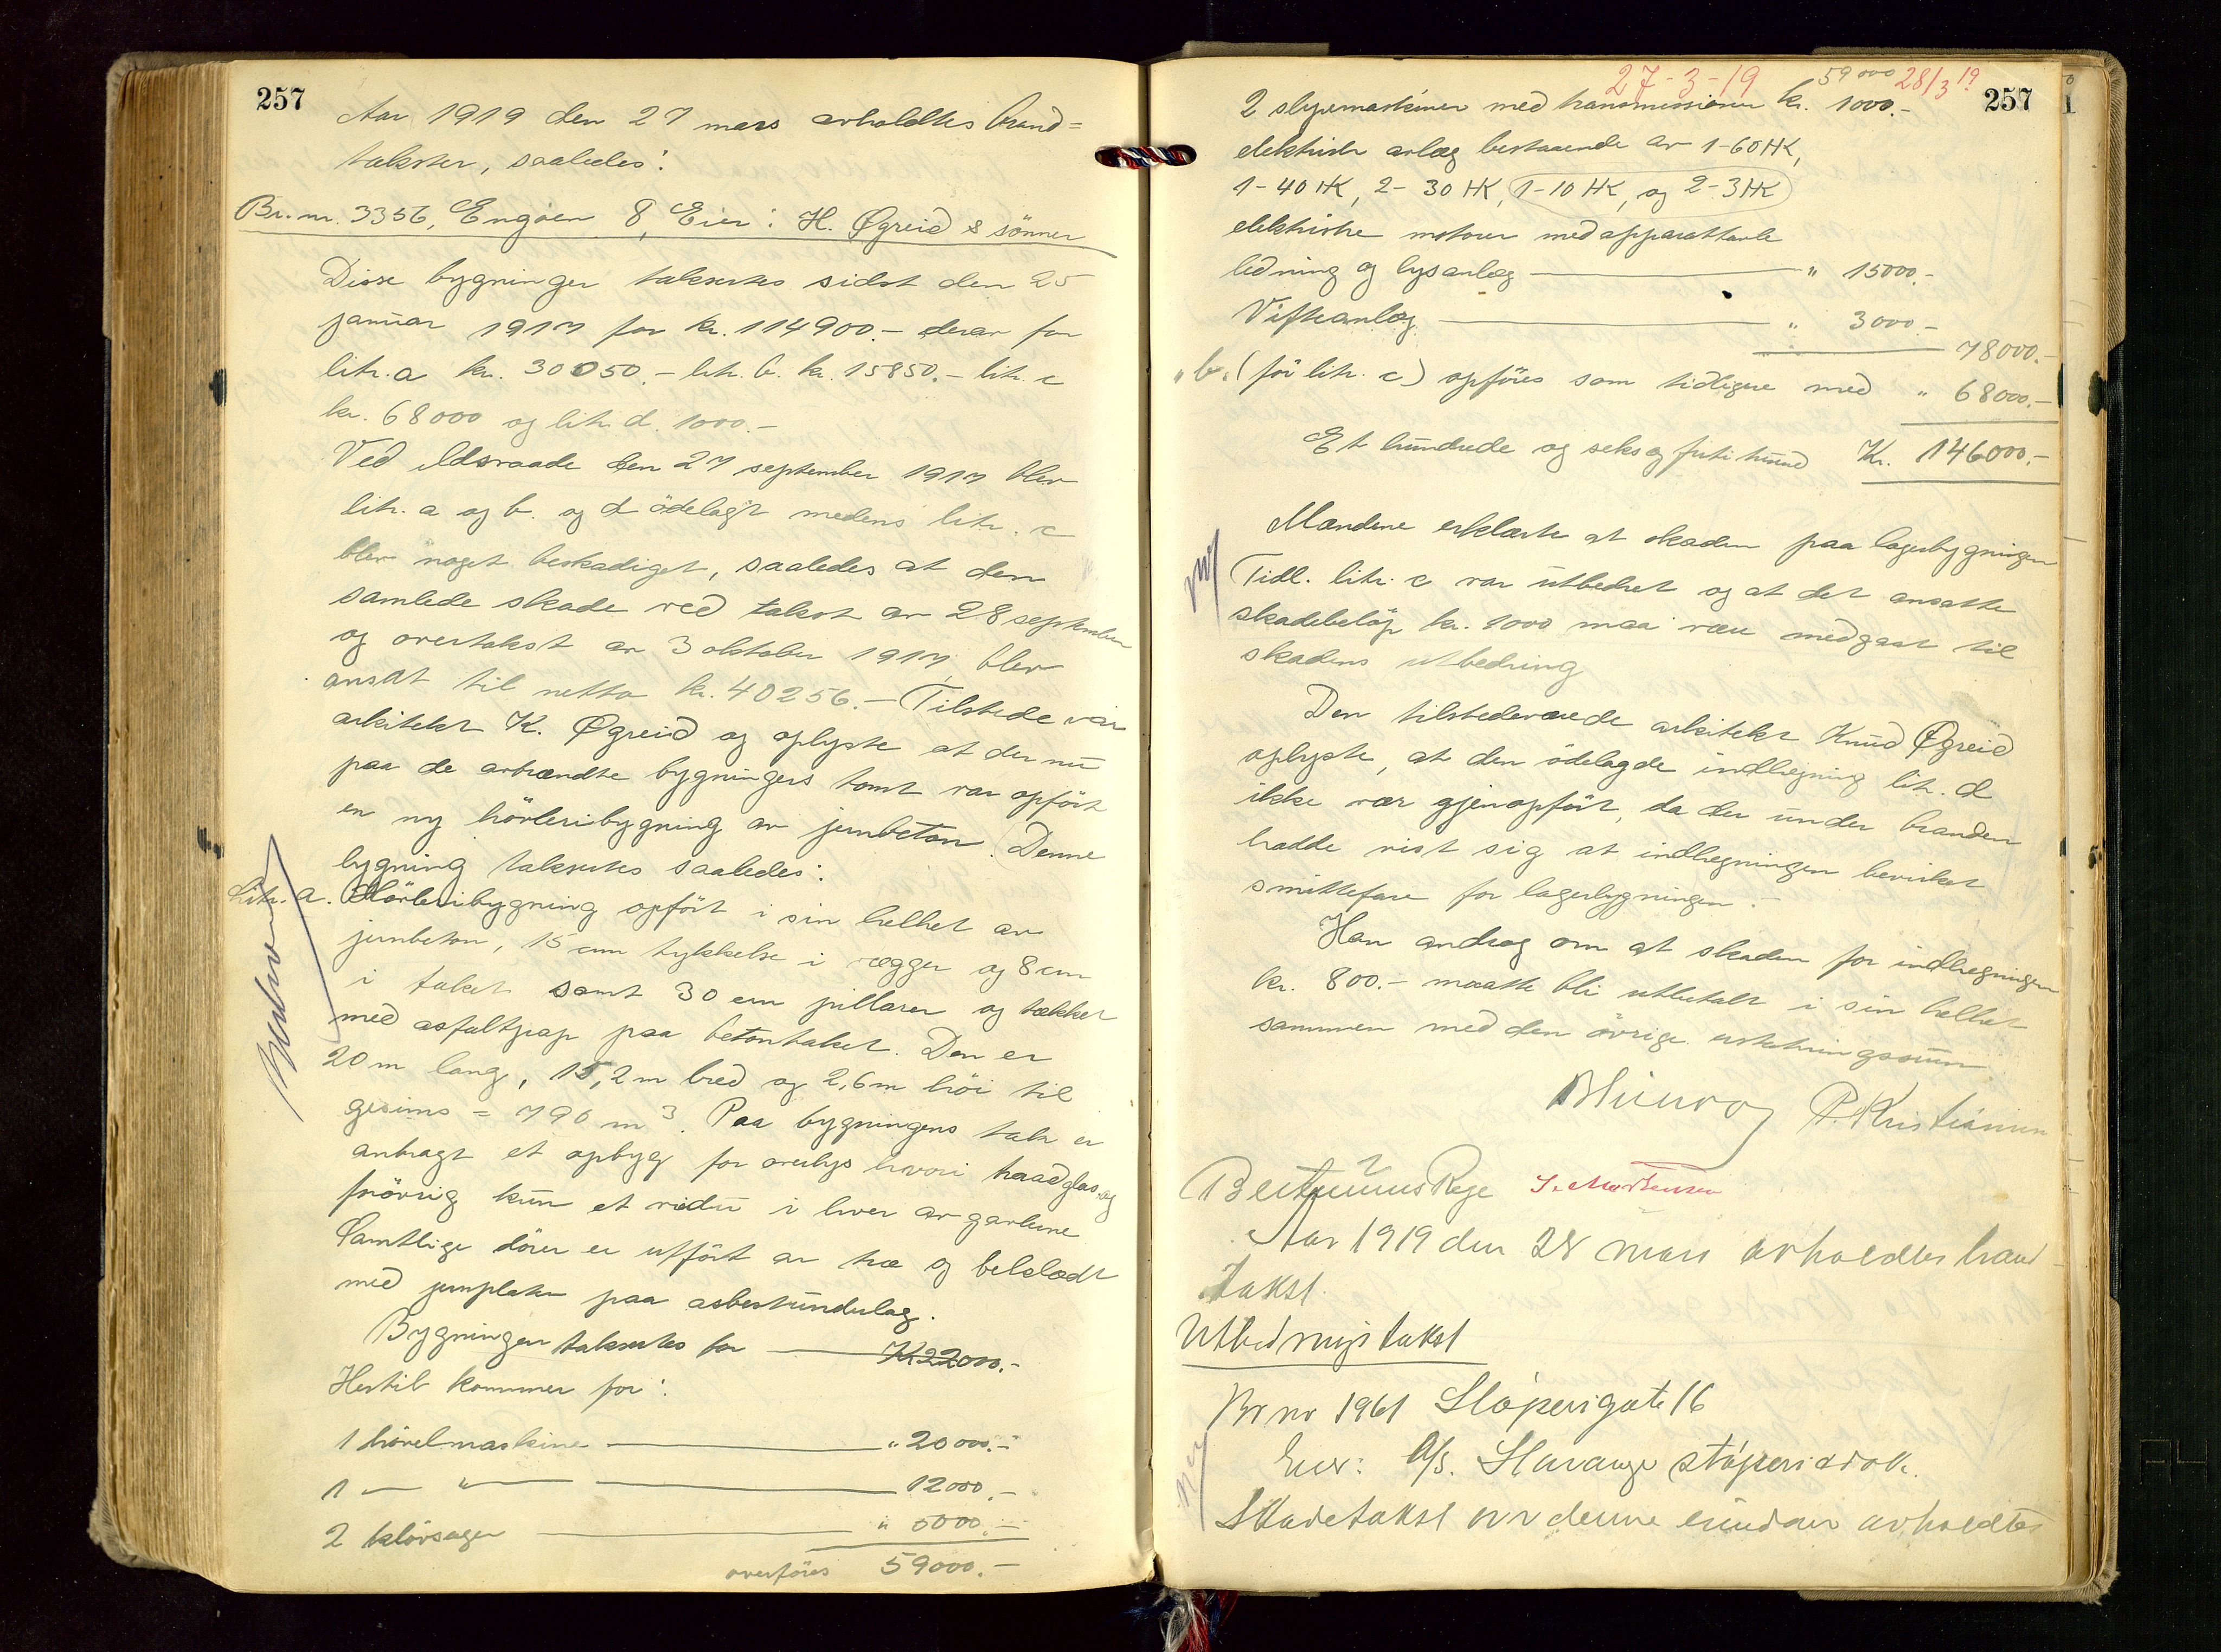 257
Aar 1919 den 27 mars avholdtes brand=
takster, saaledes:
Br. nr. 3356, Engöen 8, Eier: H. Øgreid & sönner
Disse bygninger takseretes sidst den 25
januar 1917 for kr. 114900.- derav for
litr. a kr. 30050.- litr. b. kr. 15850.- litr. c
kr. 68000 og litr. d. 1000.-
Ved ildsvaade den 27 september 1917 blev
litr. a og b. og d ödelagt medens litr. c
blev noget beskadiget, saaledes at den
samlede skade ved takst av 28 september
og overtakst av 3 oktober 1917 blev
ansat til netto kr. 40256.- Tilstede var
arkitekt K. Øgreid og oplyste at der nu
paa de avbrændte bygningers tomt var opfört
en ny hövleribygning av jernbeton. Denne
bygning takseretes saaledes:
Litr. a. Hövleribygning opfört i sin helhet av
jernbeton, 15 cm tykkelse i vægger og 8 cm
i taket samt 30 cm pillarer og tækket
med asfaltpap paa betontaket. Den er
20 m lang, 15,2 m bred og 2,6 m höi til
gesims = 790 m³. Paa bygningens tak er
anbragt et opbyg for overlys hvori traadglas og
forövrig kun et vindu i hver av gavlene
Samtlige dörer er utfört av træ og beklædt
med jernplater paa asbestunderlag.
Bygningen takseretes for Kr 22000.-
Hertil kommer for:
1 hövelmaskine " 20000.-
1 — " — 12000.-
2 klövsager " 5000.-
overföres 59000.-
27-3-19
59000
28/3 19
257
2 slipemaskiner med transmissioner kr. 1000.-
elektrisk anlæg bestaaende av 1-60 HK,
1-40 HK, 2-30 HK, 1-10 HK, og 2-3 HK
elektriske motorer med apparattavle
ledning og lysanlæg " 15000.-
Vifteanlæg " 3000.-
78000.-
" b. (för litr. c) opföres som tidligere med " 68000.-
Et hundrede og seks og förti tusind Kr. 146000.-
Mændene erklærte at skaden paa lagerbygningen
Tidl. litr. c var utbedret og at det ansatte
skadebelöp kr. 1000 maa være medgaat til
skadens utbedring
Den tilstedeværende arkitekt Knud Øgreid
oplyste, at den ödelagde indhegning litr. d
ikke var gjenopfört, da der under branden
hadde vist sig at indhegningen bevirket
smittefare for lagerbygningen.-
Han androg om at skaden for indhegningen
kr. 800.- maatte bli utbetalt i sin helhet
sammen med den övrige erstatningssum.
P. Kristiansen
Rege S. Mortensen
Aar 1919 den 28 mars avholdtes brand-
takst.
Utbedringstakst
Br nr 1961 Stöperigate 16
Eier: A/S. Stavanger støperi & dok.
Skadetakst over denne eiendom avholdtes